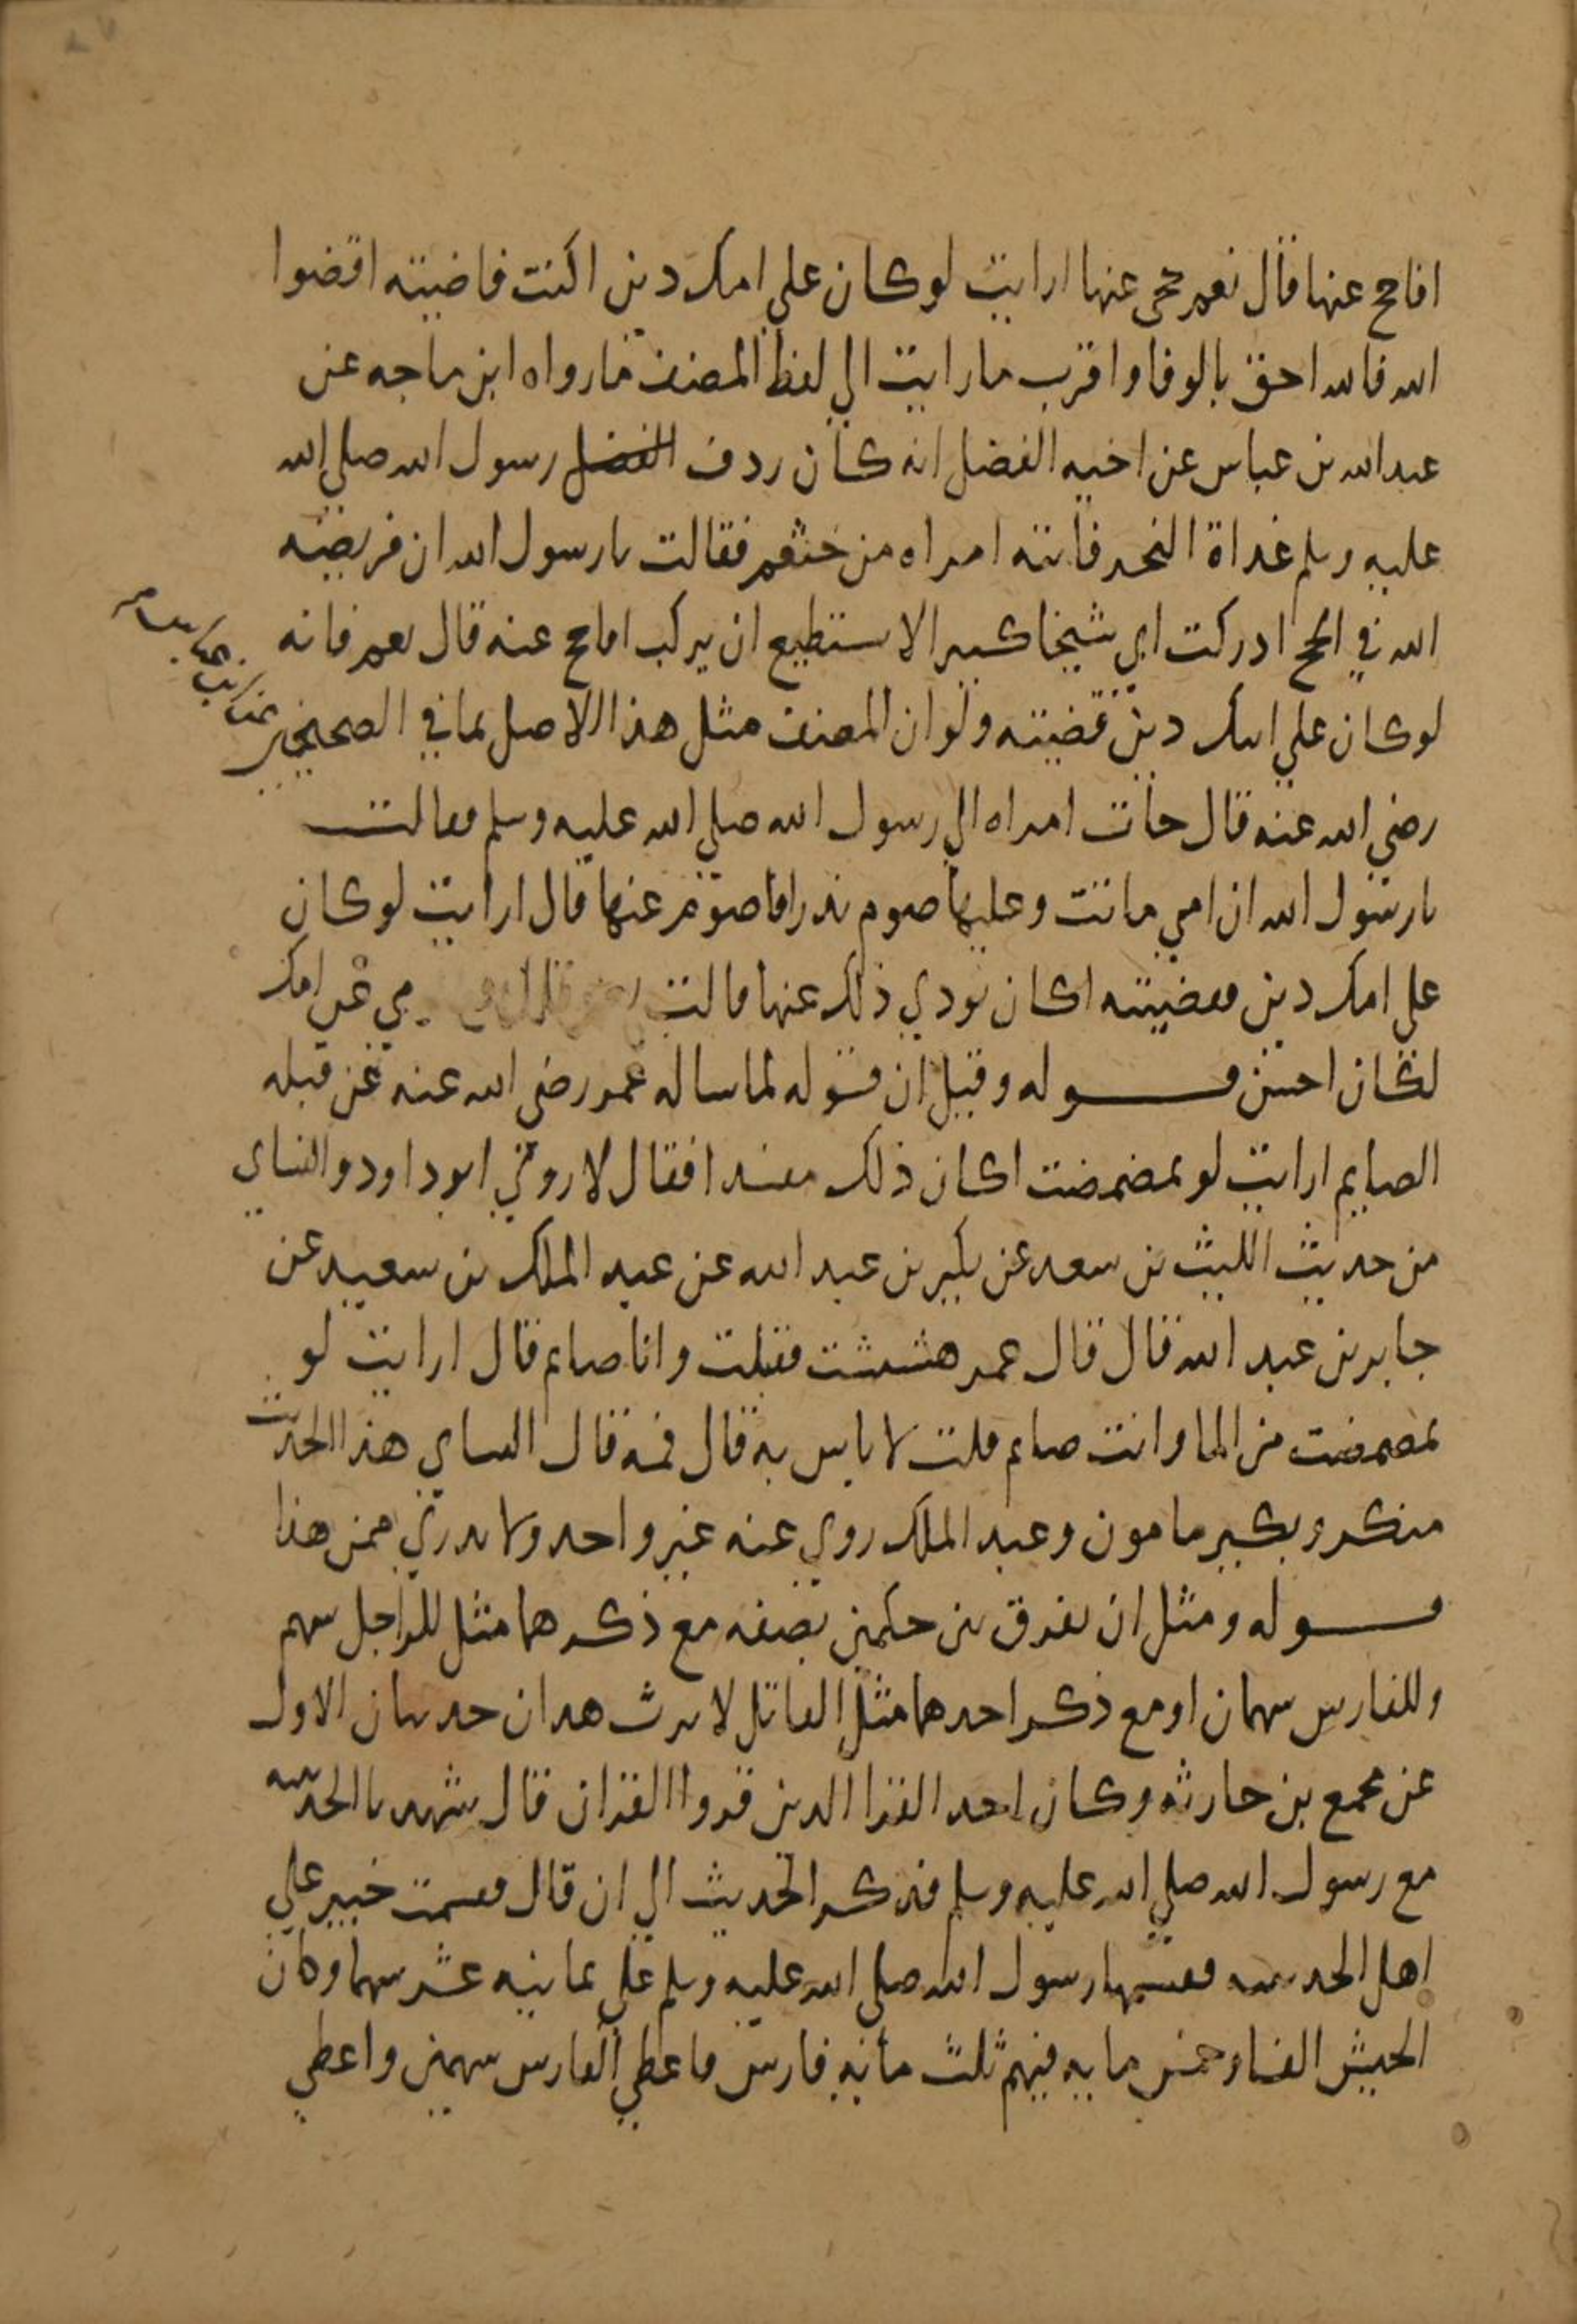 افاحج عنها قال نعم حجى عنها ارايت لو كان على امك دين اكنت قاضيته اقضوا
الله فالله احق بالوفا واقرب ما رايت الي لفظ المصنف ما رواه ابن ماجه عن
عبد الله بن عباس عن اخيه الفضل انه كان ردف الفضل رسول الله صلي الله
عليه وسلم غداة النحر فاتته امراه من خثعم فقالت يا رسول الله ان فريضة
الله في الحج ادركت ابي شيخا كبيرا لا يستطيع ان يركب افاحج عنه قال نعم فانه
لو كان علي ابيك دين قضيته ولو ان المصنف مثل هذا الاصل بما في الصحيحين
عن ابن عباس
رضي الله عنه قال جات امراه الي رسول الله صلي الله عليه وسلم فقالت
يا رسول الله ان امي ماتت وعليها صوم نذر افاصوم عنها قال ارايت لو كان
علي امك دين فقضيته اكان يودي ذلك عنها قالت نعم قال فصومي عن امك
لكان احسن قوله وقيل ان قوله لما ساله عمر رضي الله عنه عن قبله
الصايم ارايت لو تمضمضت اكان ذلك مفسدا فقال لا روي ابو داود والنساي
من حديث الليث بن سعد عن بكير بن عبد الله عن عبد الملك بن سعيد عن
جابر بن عبد الله قال قال عمر هششت فقبلت وانا صايم قال ارايت لو
تمضمضت من الما وانت صايم قلت لا باس به قال فمه قال النساي هذا الحديث
منكر وبكير مامون وعبد الملك روي عنه غير واحد ولا ندري ممن هذا
قوله ومثل ان يفرق بين حكمين بصفه مع ذكرهما مثل للراجل سهم
وللفارس سهمان او مع ذكر احدهما مثل القاتل لا يرث هذان حديثان الاول
عن مجمع بن حارثه وكان احد القرا الذين قروا القران قال شهدنا الحديبيه
مع رسول الله صلي الله عليه وسلم فذكر الحديث الي ان قال فقسمت خيبر علي
اهل الحديبيه فقسمها رسول الله صلي الله عليه وسلم علي ثمانيه عشر سهما وكان
الجيش الفا وخمس مايه فيهم ثلث مايه فارس فاعطي الفارس سهمين واعطي